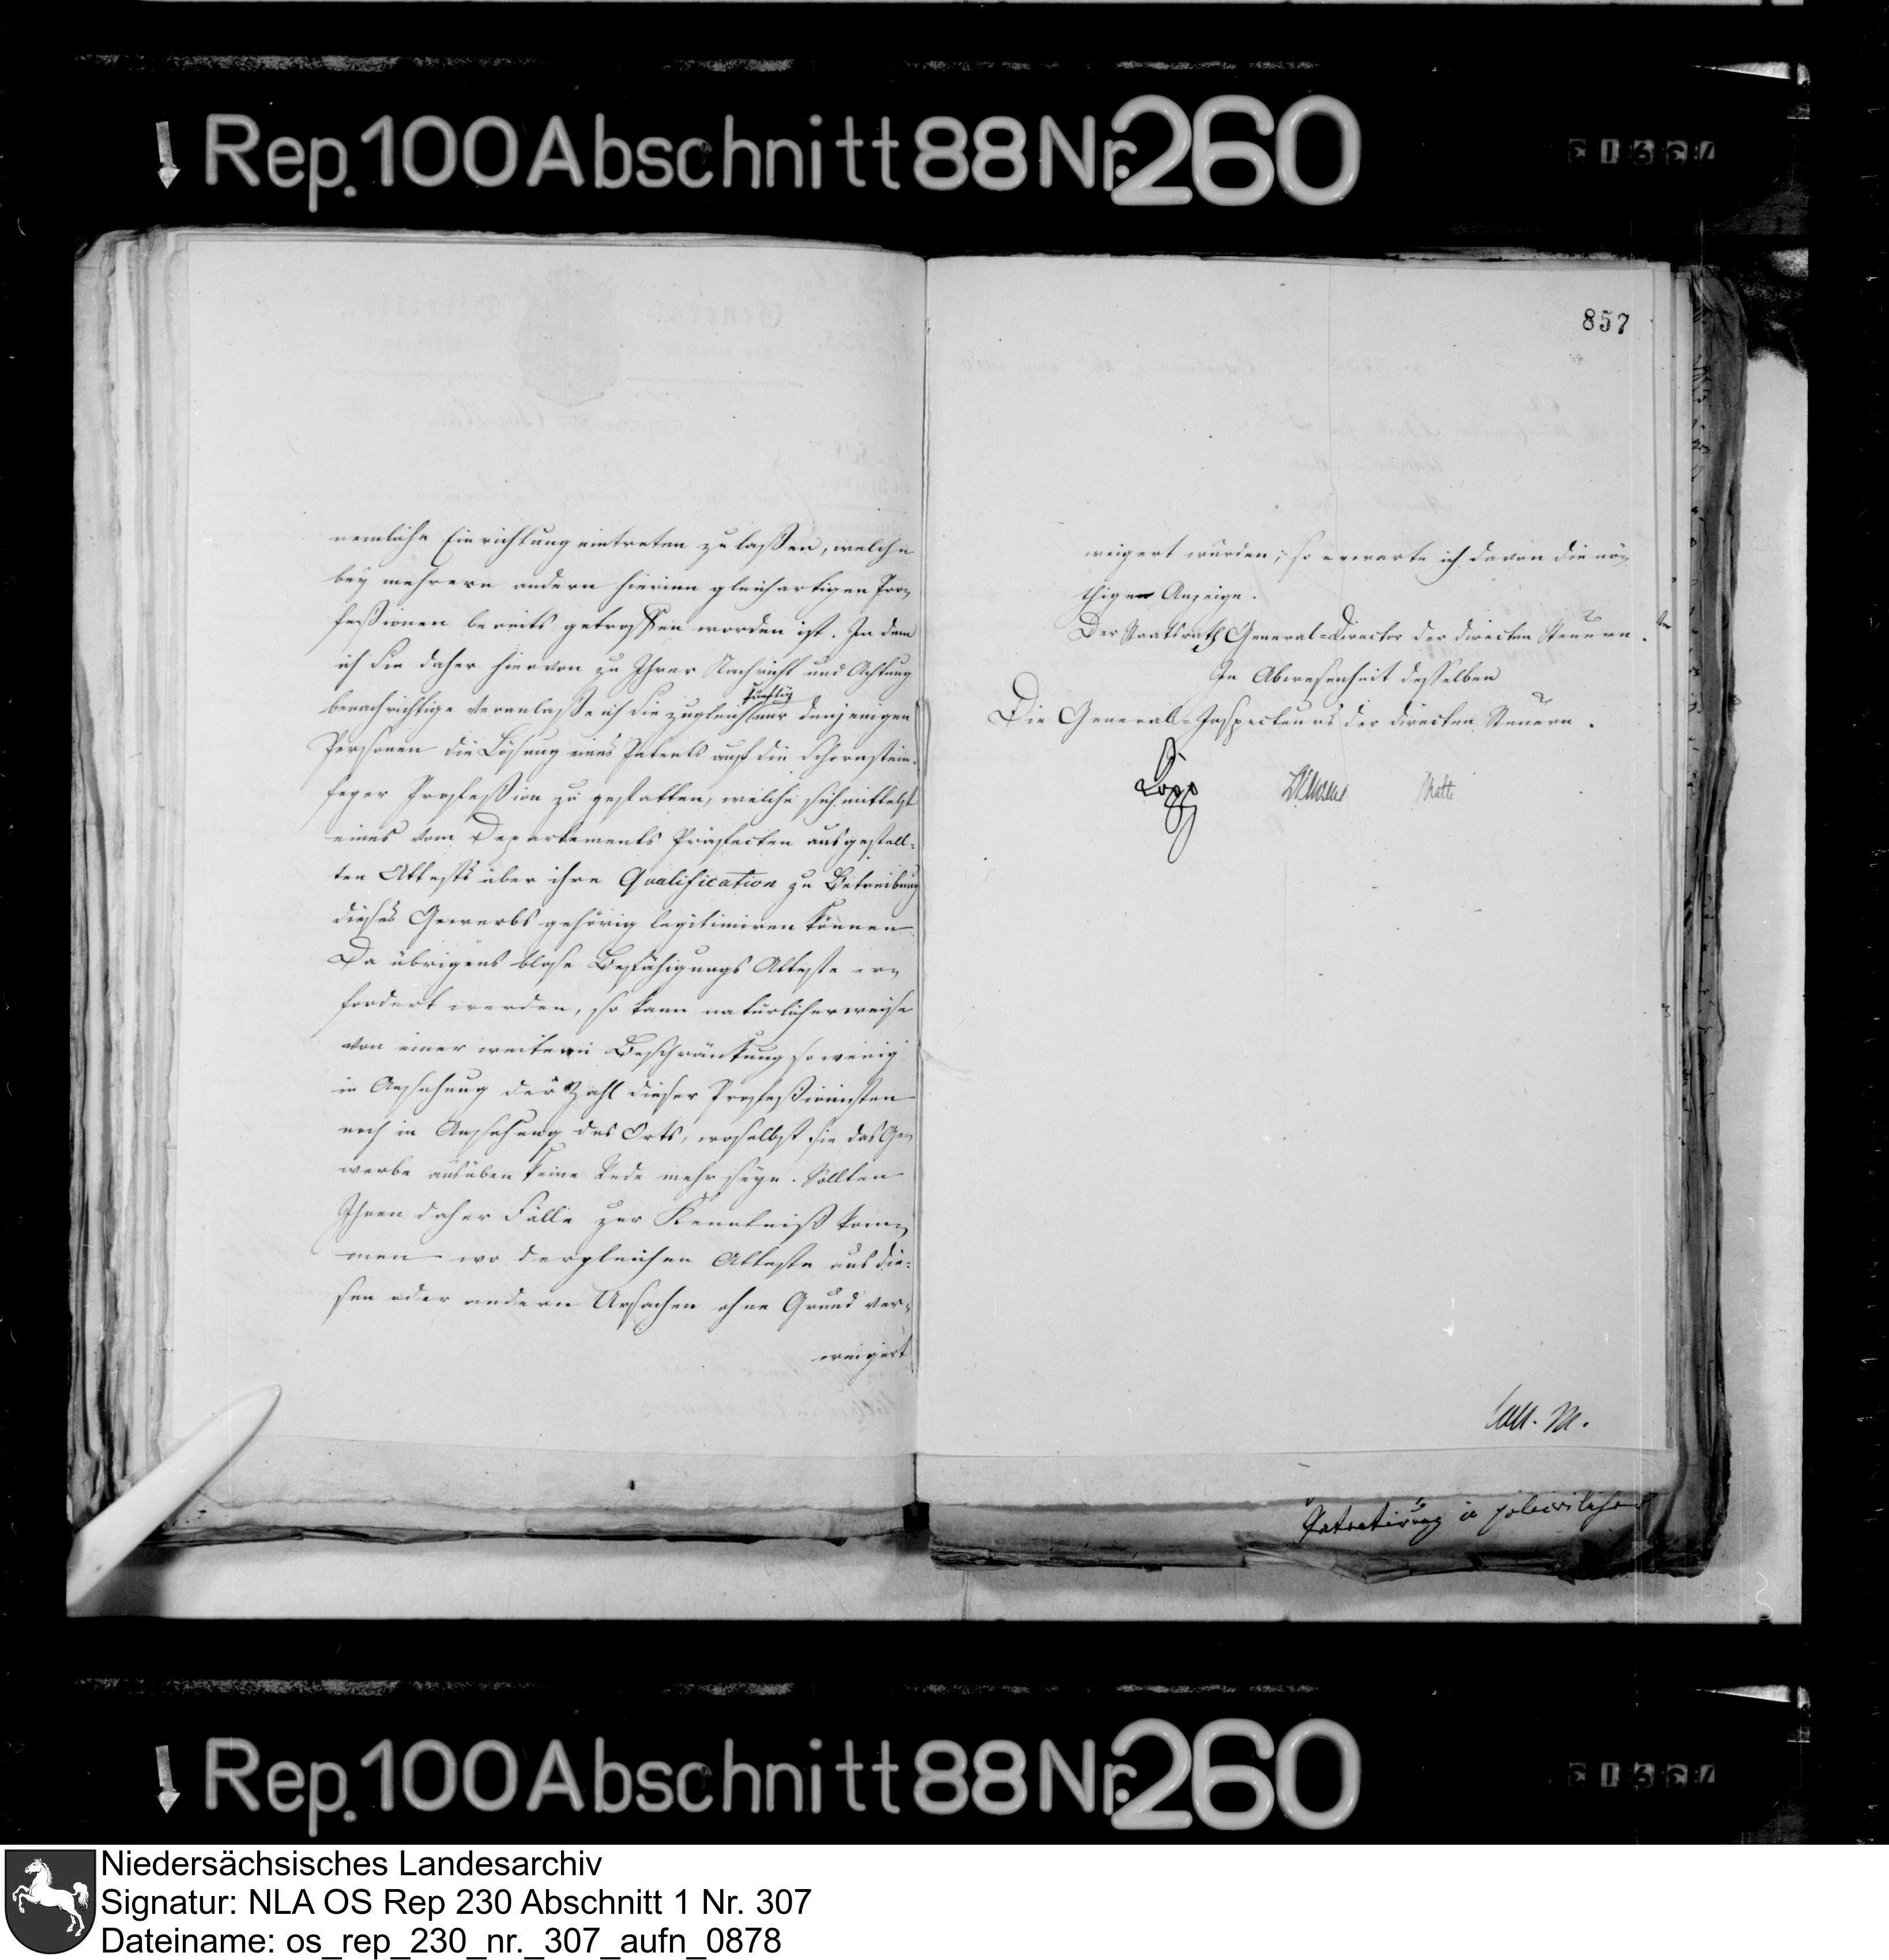 Rep. 100 Abschnitt 88 Nr. 260
nemliche Einrichtung eintreten zu laßen, welche
bey mehrern andern hierinn gleichartigen Pro-
feßionen bereits getroffen worden ist. In dem
ich Sie daher hiervon zu Ihrer Nachricht und Achtung
benachrichtige veranlaße ich Sie zugleich künftig nur denjenigen
Personen die Lösung eines Patents auf die Schornstein-
feger Profeßion zu gestatten, welche sich mittelst
eines vom Departements Präfecten ausgestell-
ten Attests über ihre Qualification zu Betreibung
dieses Gewerbs gehörig legitimiren können
Da übrigens blose Befähigungs Atteste er-
fordert werden, so kann natürlicherweise
von einer weitern Beschränkung so wenig
in Ansehung der Zahl dieser Profeßionisten
noch in Ansehung des Orts, woselbst sie das Ge-
werbe ausüben keine Rede mehr seyn. Sollten
Ihnen daher Fälle zur Kenntniß kom-
men wo dergleichen Atteste aus die-
sen oder andern Ursachen ohne Grund ver-
weigert
857
weigert würden; so erwarte ich davon die nö-
thigen Anzeige.
Der Staatsrath General-Director der directen Steuern.
In Abwesenheit desselben
Die General-Inspecteurs der directen Steuern.
Rep. 100 Abschnitt 88 Nr. 260
Niedersächsisches Landesarchiv
Signatur: NLA OS Rep 230 Abschnitt 1 Nr. 307
Dateiname: os_rep_230_nr._307_aufn_0878